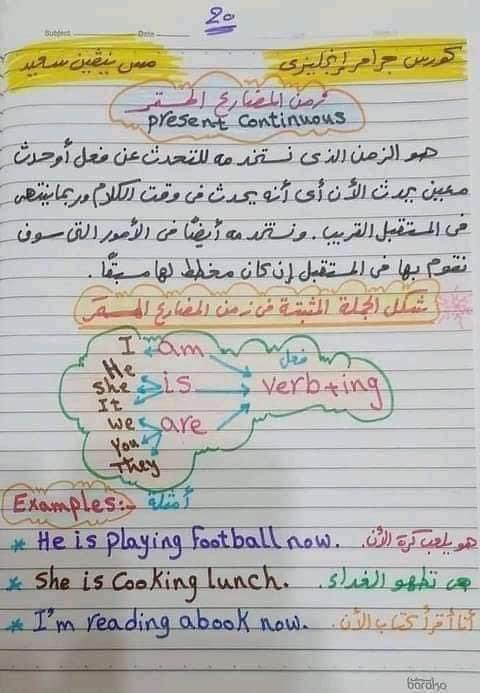 20
Subject Date
كورس جرامر إنجليزى مس نيڤين سعيد
زمن المضارع المستمر
present Continuous
هو الزمن الذى نستخدمه للتحدث عن فعل أو حدث
معين يحدث الأن أى أنه يحدث فى وقت الكلام وربما ينتهى
فى المستقبل القريب. ونستخدمه أيضًا فى الأمور التى سوف
نقوم بها فى المستقبل إن كان مخطط لها مسبقًا.
شكل الجملة المثبتة فى زمن المضارع المستمر
I am فعل
He
She is verb+ing
It
We are
You
They
Examples:- أمثلة
* He is playing football now. هو يلعب كرة الأن.
* She is Cooking lunch. هى تطهو الغداء.
* I'm reading abook now. أنا أقرأ كتاب الأن.